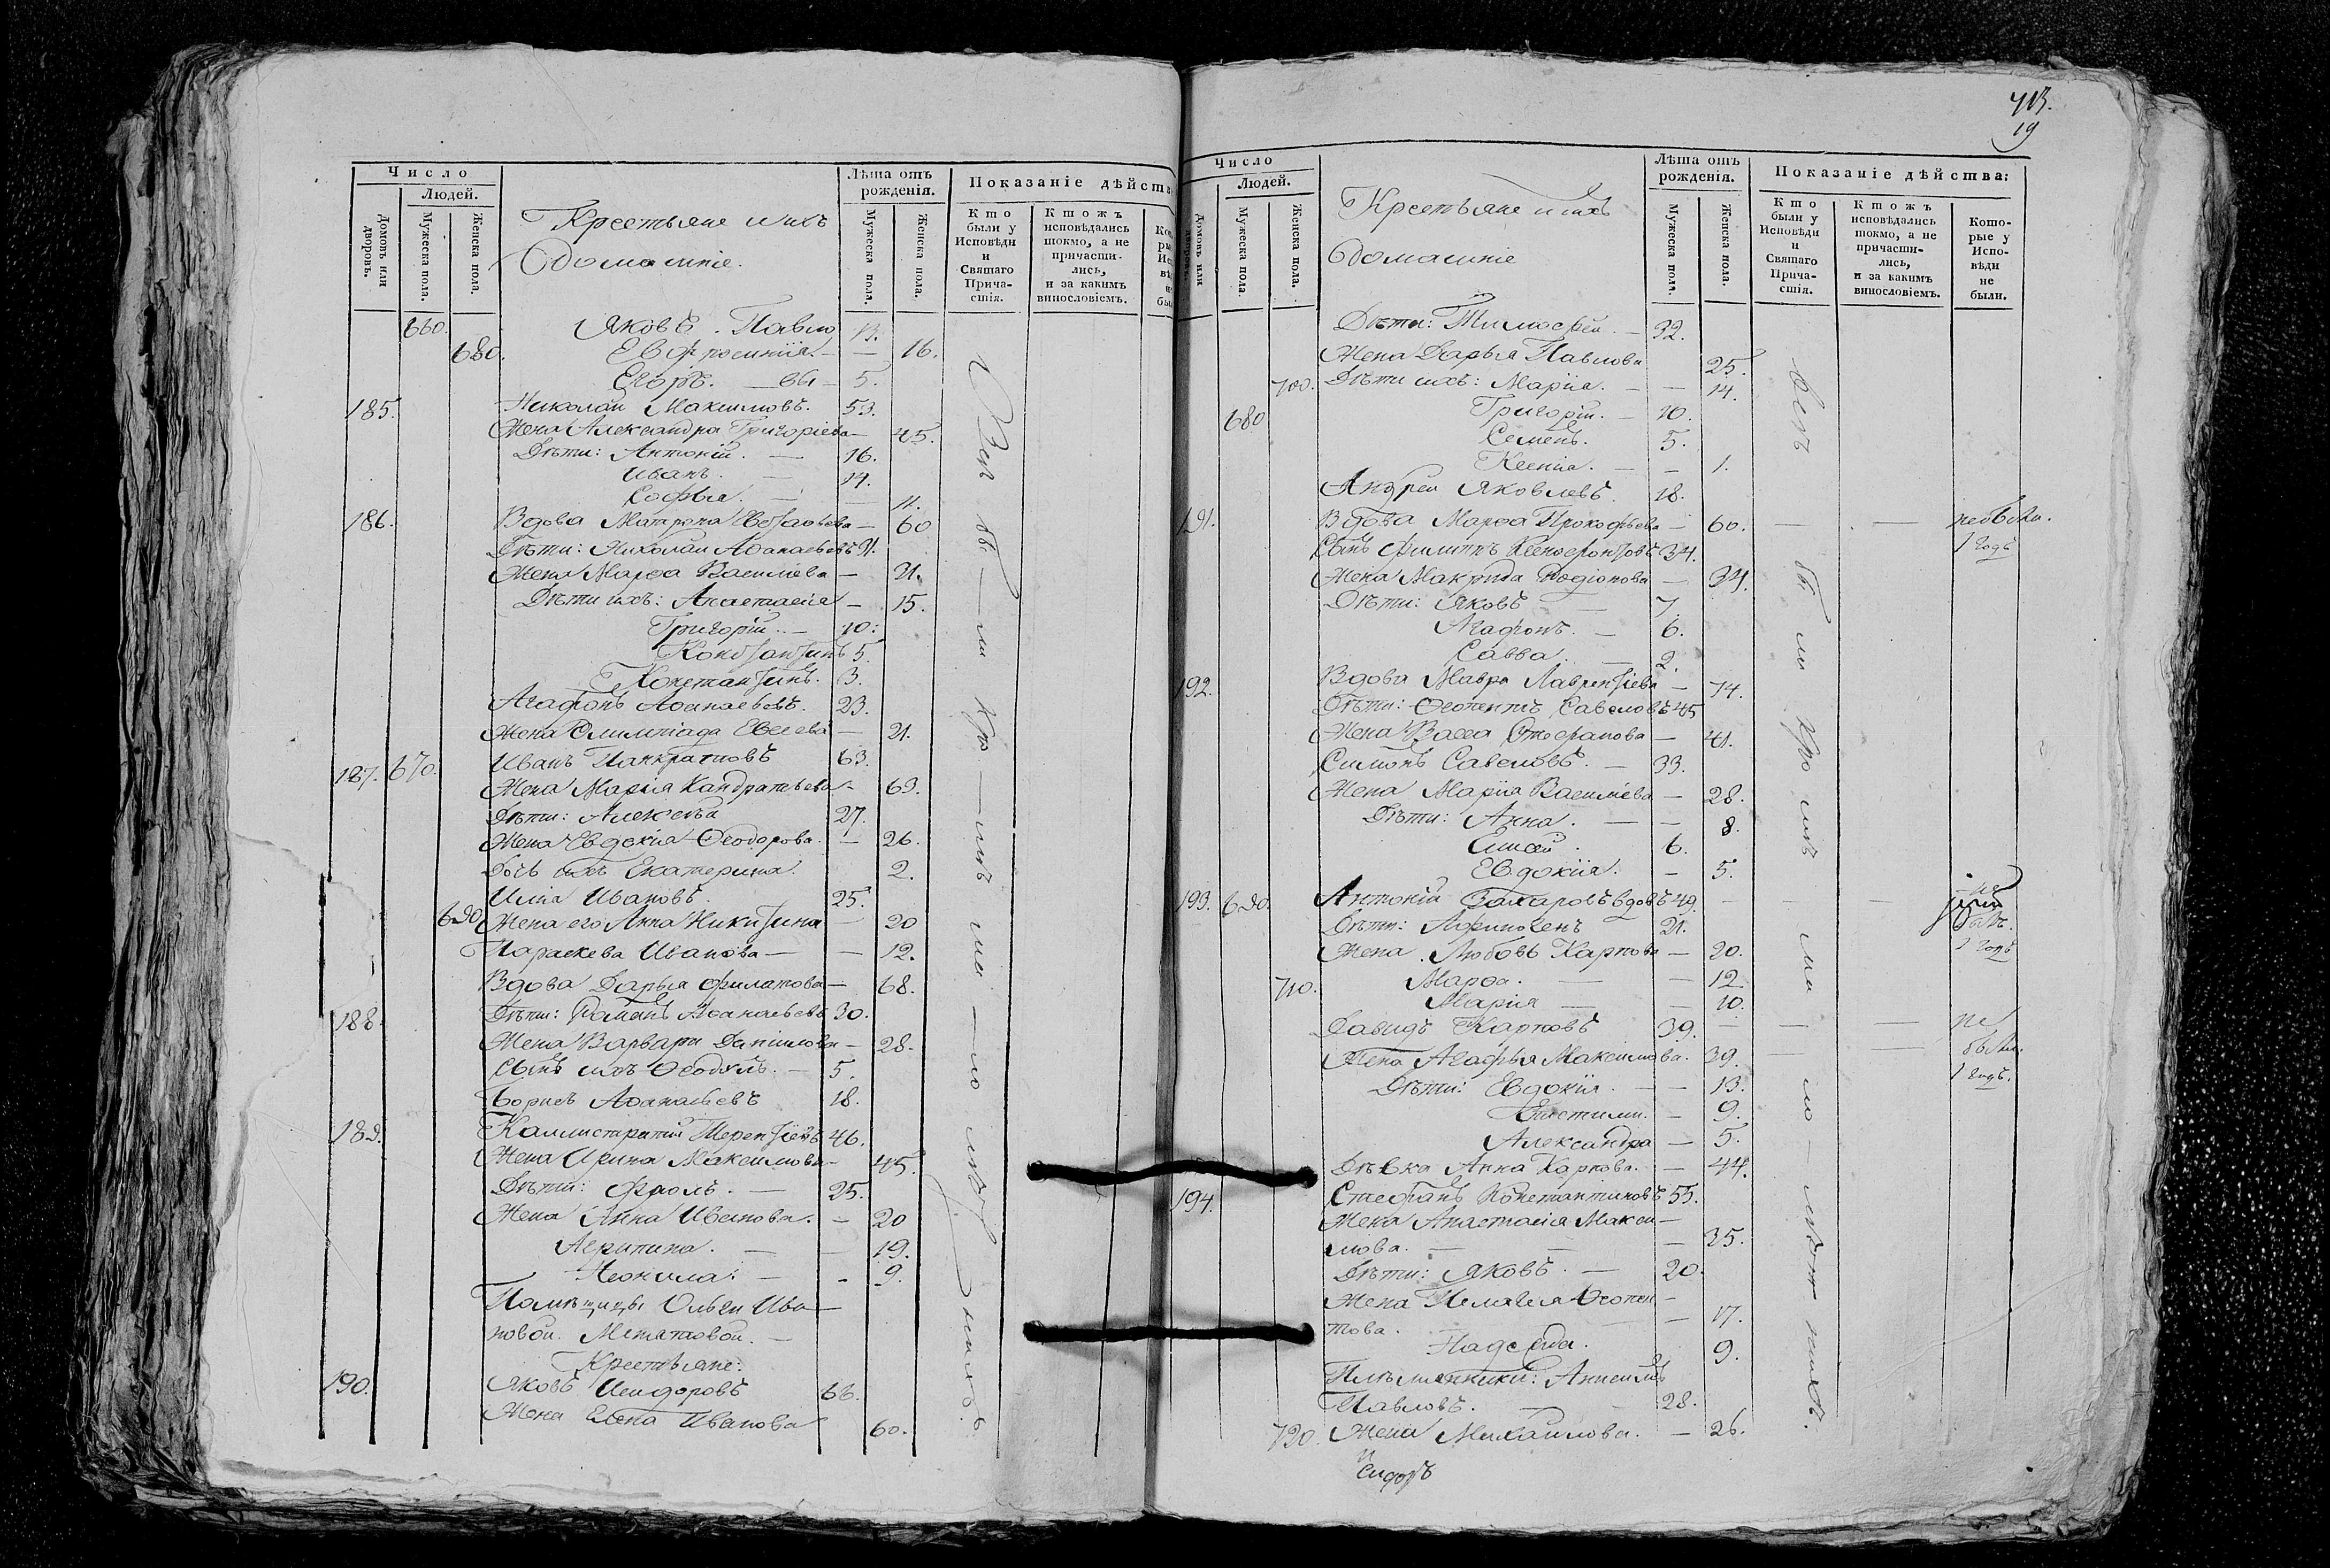 Число
Людей.
Домовъ или дворовъ.
Мужеска пола.
Женска пола.
Крестьяне и ихъ
Домашніе.
Лѣта отъ рожденія.
Мужеска пола.
Женска пола.
Показаніе дѣйств
Кто были у Исповѣди и Святаго Причастія.
Ктожъ исповѣдались токмо, а не причастились, и за какимъ винословіемъ.
660. Яковъ. Павло 13.
680. Евфросинія — — 16.
Егоръ. — вы — 5.
185. Николай Максимовъ. 53.
Жена Александра Григоріева — 45.
Дѣти: Антоній. — 16.
Иванъ. — 14.
Софья. — — 11.
186. Вдова Матрона Евстафьева — 60
Дѣти: Николай Аѳанасьевъ 21.
Жена Марѳа Василіева — 21.
Дѣти ихъ: Анастасія — 15.
Григорій. — 10.
Константинъ 5.
Константинъ. 3.
Агафонъ Аѳанасьевъ. 23.
Жена Олимпіада Евсеева — 21.
187. 670. Иванъ Панкратовъ 63.
Жена Марія Кандратьева — 63.
Дѣти: Алексѣй 27.
Жена Евдокія Ѳеодорова. — 26.
Дочь ихъ Екатерина. 2.
Илья Ивановъ. 25.
690 Жена его Анна Никитина — 20
Параскева Иванова — — 12.
Вдова Дарья Филатова — 68.
188. Дѣти: Романъ Аѳанасьевъ 30.
Жена Варвара Данилова — 28.
Сынъ ихъ Ѳеодулъ. — 5.
Борисъ Аѳанасьевъ 18.
189. Каллистратій Терентіевъ 46.
Жена Ирина Максимова — 45.
Дѣти: Фролъ. — 25.
Жена Анна Иванова. — 20
Агрипина. — — 19.
Неонила. — - 9.
Помѣщицы Ольги Ива
новой. —
Крестьяне:
190. Яковъ Исидоровъ 66.
Жена Елена Иванова 60.
Всѣ бы — ли
713.
19
Число
Людей.
Домовъ или дворовъ.
Мужеска пола.
Женска пола.
Крестьяне и ихъ
Домашніе
Лѣта отъ рожденія.
Мужеска пола.
Женска пола.
Показаніе дѣйства:
Кто были у Исповѣди и Святаго Причастія.
Ктожъ исповѣдались токмо, а не причастились, и за какимъ винословіемъ.
Которые у Исповѣди не были.
Дѣти: Тимоѳей. — 32.
Жена Дарья Павлова 25.
700. Дѣти ихъ: Марія. — — 14.
680 Григорій. — 10.
Семенъ. 5.
Ксенія. — — 1.
Андрей Яковлевъ. 18.
191. Вдова Марѳа Прокофьева — 60. — — не были.
1 годъ
Сынъ Филиппъ Ксенофонтовъ 34.
Жена Макрида Родіонова — 34.
Дѣти: Яковъ — 7.
Агафонъ. — 6.
Савва. — 2.
192. Вдова Мавра Лаврентіева — 74.
Дѣти: Ѳеопентъ Савеловъ 45
Жена Васса — 41.
Симонъ Савеловъ. — 33.
Жена Марія Василіева — 28.
Дѣти: Анна. — — 8.
Елисей. 6.
Евдокія. — 5.
193. 690. Антоній Захаровъ вдовъ 49. — — — не
былъ.
Дѣти: Афиногенъ 21.
Жена Любовь Карпова — 20.
710. Марѳа. — — 12
Марія — — 10.
Давидъ Карповъ 39. — — — не
Жена Агафья Максимова. 39. — — были.
1 годъ.
Дѣти: Евдокія. — — 13.
— 9.
Александра — 5.
Дѣвка Анна Карпова. — 44.
194. Стефанъ Константиновъ 55.
Жена Анастасія Макси —
мова. — — — 35.
Дѣти: Яковъ. — 20.
Жена Пелагея Ѳеопен —
това. — 17.
Надежда. 9.
Племянники: Анисимъ
Павловъ. — 28.
720. Жена Михайлова. — 26.
Исидоръ
всѣ бы ли